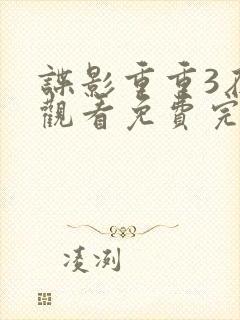 諜影重重3
觀看免費完
凌洌